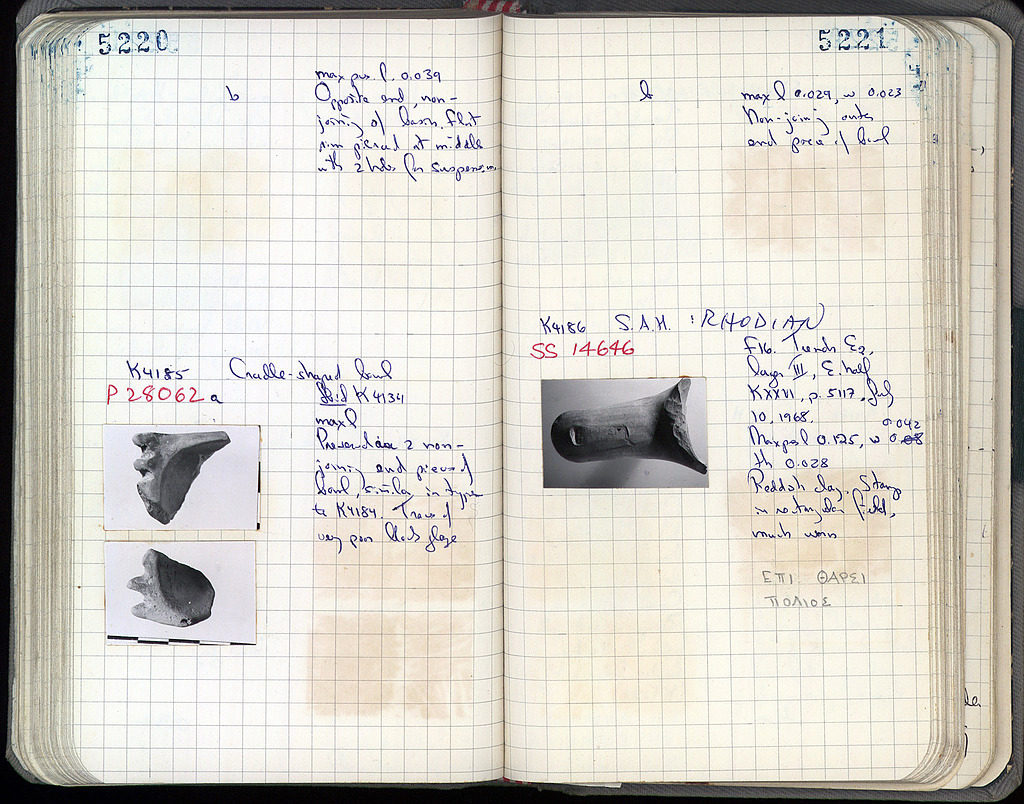 5220
b
max pres. l. 0.039
Opposite end, non-
joining of basin. Flat
rim pierced at middle
with 2 holes for suspension
K4185 Cradle-shaped bowl
P 28062 a
Ibid K4134
max l
Preserved are 2 non-
joining end pieces of
bowl, similar in type
to K4184. Traces of
very poor black glaze
5221
b
max l 0.029, w 0.023
Non-joining outer
end piece of bowl
K4186 S.A.H. : RHODIAN
SS 14646
F16. Trench E2,
layer III, E. half
KXXVI, p. 5117, July
10, 1968.
0.042
Max pres l 0.125, w
th 0.028
Reddish clay. Stamp
in rectangular field,
much worn
ΕΠΙ ΘΑΡΣΙ
ΠΟΛΙΟΣ